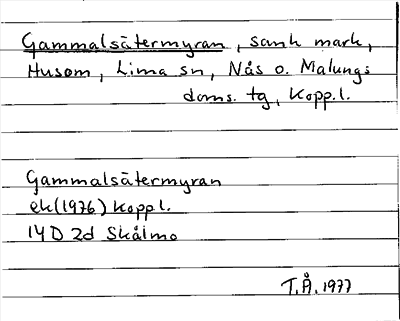 Gammalsätermyran, sank mark,
Husom, Lima sn, Nås o. Malungs
doms. tg, Kopp.l.
Gammalsätermyran
ek (1976) Koppl.
14 D 2d Skålmo
T.Å. 1977